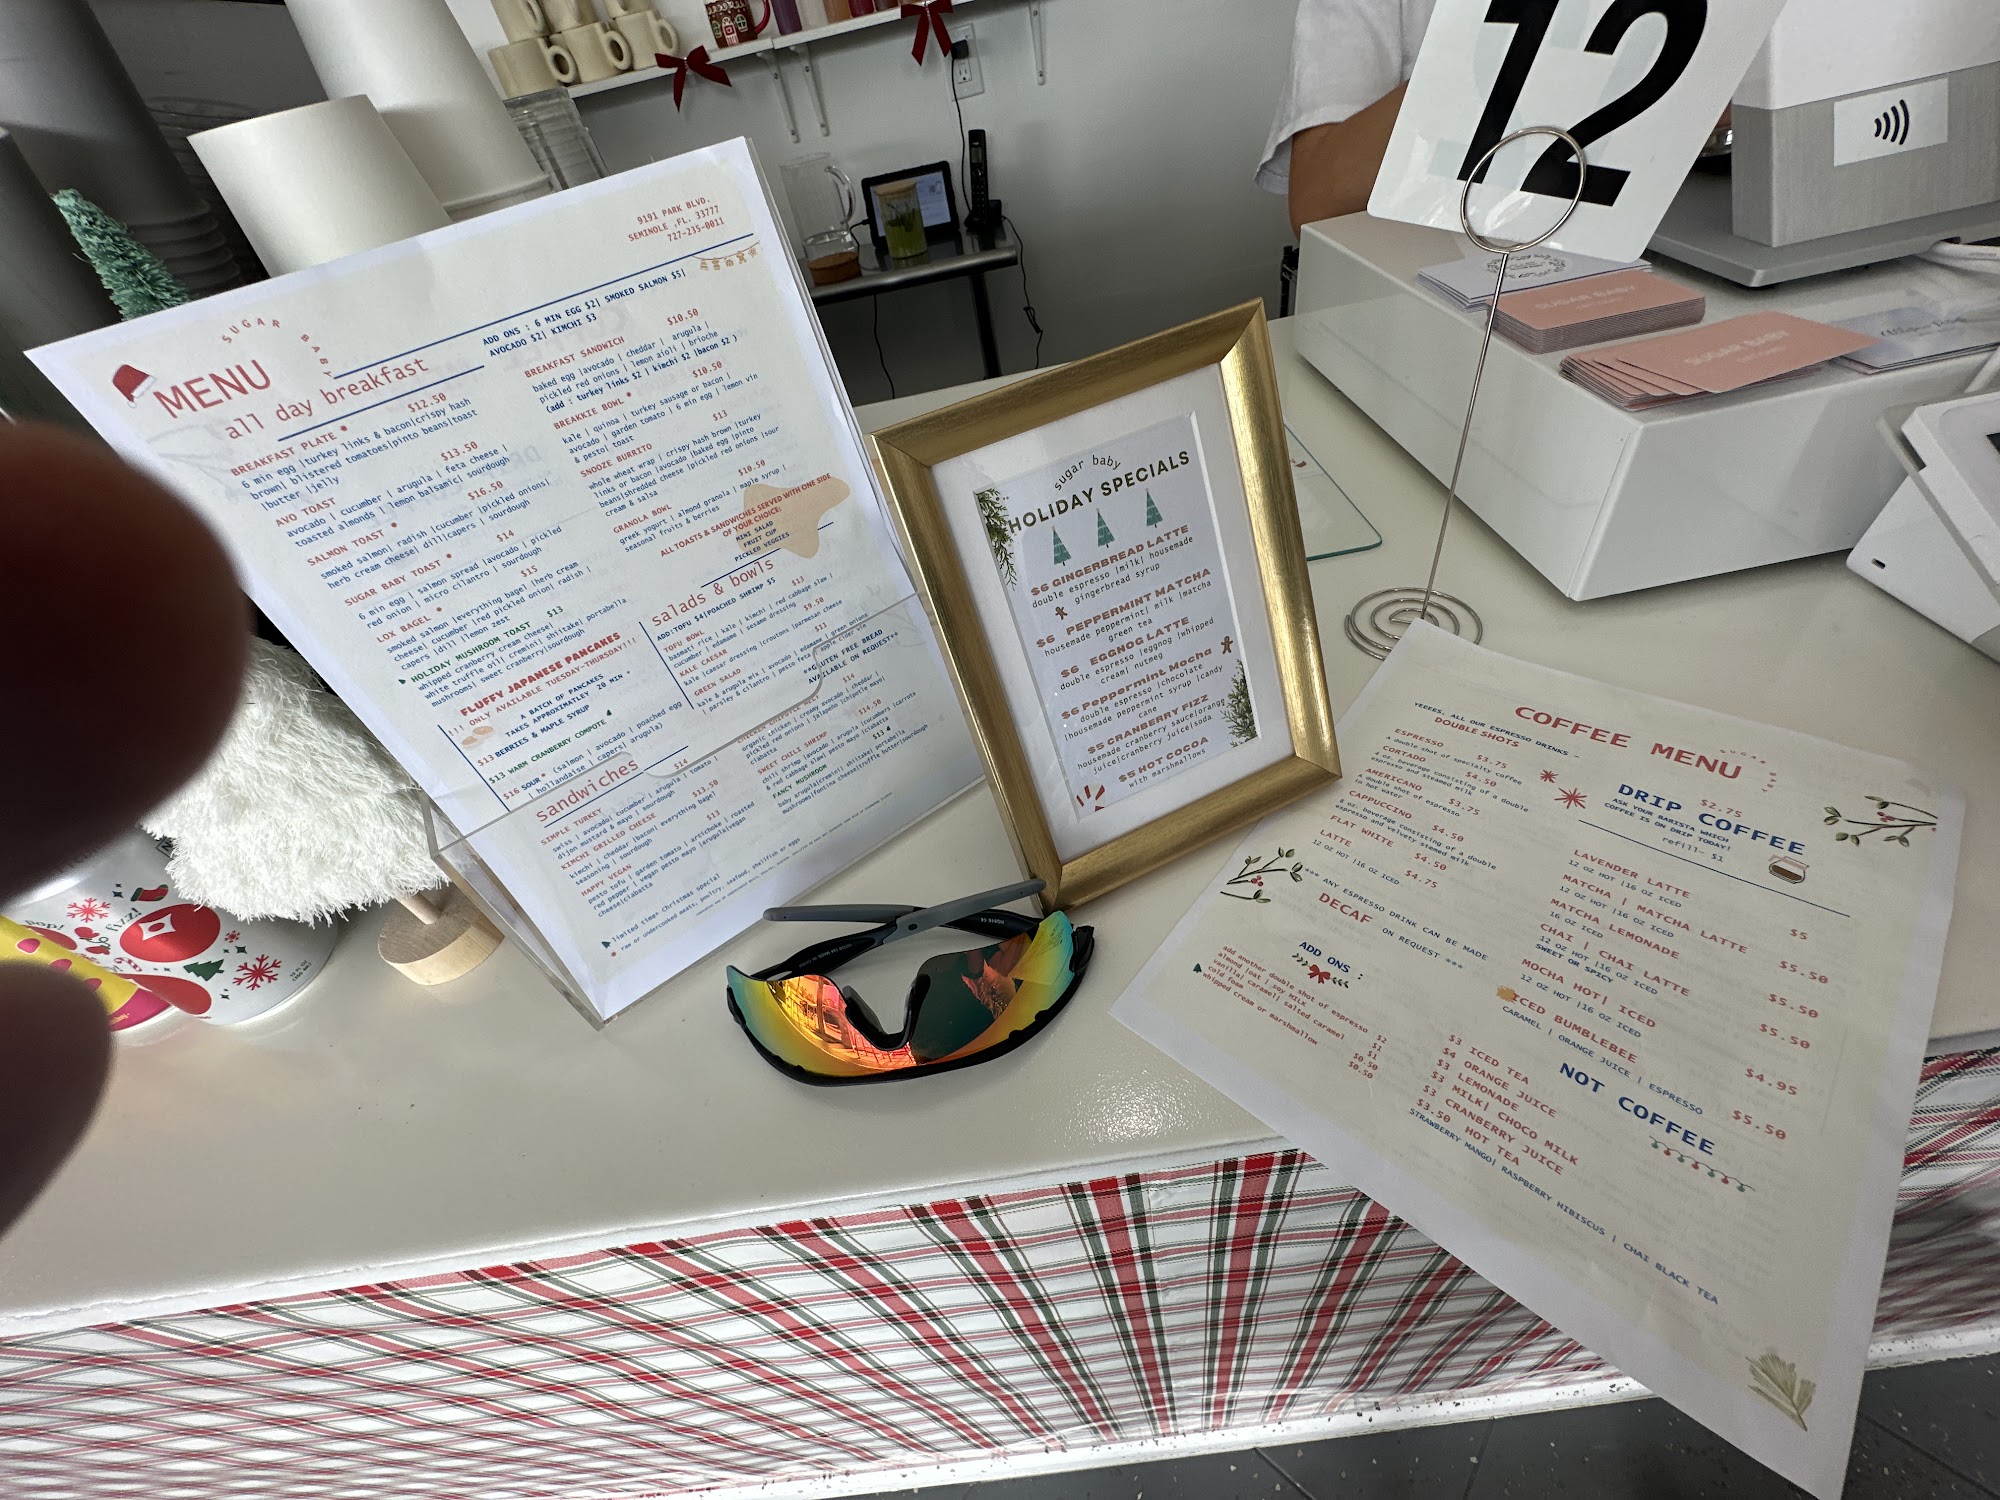 12
9191 PARK BLVD.
SEMINOLE ,FL. 33777
727-235-0011
SUGAR BABY
MENU
all day breakfast
ADD ONS : 6 MIN EGG $2| SMOKED SALMON $5|
AVOCADO $2| KIMCHI $3
BREAKFAST PLATE * $12.50
6 min egg |turkey links & bacon|crispy hash
brown| blistered tomatoes|pinto beans|toast
|butter |jelly
AVO TOAST $13.50
avocado | cucumber | arugula | feta cheese |
toasted almonds | lemon balsamic| sourdough
SALMON TOAST * $16.50
smoked salmon| radish |cucumber |pickled onions|
herb cream cheese| dill|capers | sourdough
SUGAR BABY TOAST * $14
6 min egg | salmon spread |avocado | pickled
red onion | micro cilantro | sourdough
LOX BAGEL * $15
smoked salmon |everything bagel |herb cream
cheese| cucumber |red pickled onion| radish |
capers |dill |lemon zest
HOLIDAY MUSHROOM TOAST $13
whipped cranberry cream cheese|
white truffle oil| cremini| shiitake| portabella
mushrooms| sweet cranberry|sourdough
FLUFFY JAPANESE PANCAKES
!!! ONLY AVAILABLE TUESDAY-THURSDAY!!!
A BATCH OF PANCAKES
TAKES APPROXIMATLEY 20 MIN *
$13 BERRIES & MAPLE SYRUP
$13 WARM CRANBERRY COMPOTE
$16 SOUR * (salmon | avocado | poached egg
| hollandaise | capers| arugula)
BREAKFAST SANDWICH $10.50
baked egg |avocado | cheddar | arugula |
pickled red onions | lemon aioli | brioche
(add : turkey links $2 | kimchi $2 |bacon $2 )
BREAKKIE BOWL * $10.50
kale | quinoa | turkey sausage or bacon |
avocado | garden tomato | 6 min egg | lemon vin
& pesto| toast
SNOOZE BURRITO $13
whole wheat wrap | crispy hash brown |turkey
links or bacon |avocado |baked egg |pinto
beans|shredded cheese |pickled red onions |sour
cream & salsa
GRANOLA BOWL $10.50
greek yogurt | almond granola | maple syrup |
seasonal fruits & berries
ALL TOASTS & SANDWICHES SERVED WITH ONE SIDE
OF YOUR CHOICE:
MINI SALAD
FRUIT CUP
PICKLED VEGGIES
salads & bowls
ADD:TOFU $4|POACHED SHRIMP $5
TOFU BOWL $13
basmati rice | kale | kimchi | red cabbage slaw |
cucumber | edamame | sesame dressing
KALE CAESAR $9.50
kale |caesar dressing |croutons |parmesan cheese
GREEN SALAD $11
kale & arugula mix | avocado | edamame | green onions
| parsley & cilantro | pesto feta | apple cider vin
**GLUTEN FREE BREAD
AVAILABLE ON REQUEST**
sandwiches
SIMPLE TURKEY $14
swiss | avocado| cucumber | arugula | tomato |
dijon mustard & mayo | sourdough
KIMCHI GRILLED CHEESE $13.50
kimchi | cheddar |bacon| everything bagel
seasoning | sourdough
HAPPY VEGAN $13
pesto tofu | garden tomato | artichoke | roasted
red pepper | vegan pesto mayo |arugula|vegan
cheese|ciabatta
$14
organic chicken | creamy avocado | cheddar |
pickled red onions | jalapeño |chipotle mayo|
SWEET CHILI SHRIMP $14.50
chili shrimp |avocado | arugula |cucumbers |carrots
& red cabbage slaw| pesto mayo |ciabatta
FANCY MUSHROOM $13
baby arugula|cremini| shiitake| portabella
mushrooms|fontina cheese|truffle butter|sourdough
limited time* Christmas special
* raw or undercooked meats, poultry, seafood, shellfish or eggs
sugar baby
HOLIDAY SPECIALS
$6 GINGERBREAD LATTE
double espresso |milk| housemade
gingerbread syrup
$6 PEPPERMINT MATCHA
housemade peppermint| milk |matcha
green tea
$6 EGGNOG LATTE
double espresso |eggnog |whipped
cream| nutmeg
$6 Peppermint Mocha
double espresso |chocolate
|housemade peppermint syrup |candy
cane
$5 CRANBERRY FIZZ
homemade cranberry sauce|orange
juice|cranberry juice|soda
$5 HOT COCOA
with marshmallows
SUGAR BABY
SUGAR BABY
COFFEE MENU
SUGAR
YEEEES, ALL OUR ESPRESSO DRINKS -
DOUBLE SHOTS
ESPRESSO $3.75
a double shot of specialty coffee
CORTADO $4.50
oz. beverage consisting of a double
espresso and steamed milk
AMERICANO $3.75
A double shot of espresso
in hot water
CAPPUCCINO $4.50
8 oz. beverage consisting of a double
espresso and velvety stemed milk
FLAT WHITE $4.50
LATTE $4.75
12 OZ HOT |16 OZ ICED
*** ANY ESPRESSO DRINK CAN BE MADE
DECAF ON REQUEST ***
ADD ONS :
add another double shot of espresso $2
almond |oat | soy MILK $1
vanilla| caramel| salted caramel $1
cold foam $0.50
whipped cream or marshmallow $0.50
DRIP $2.75
COFFEE
ASK YOUR BARISTA WHICH
COFFEE IS ON DRIP TODAY!
refill- $1
LAVENDER LATTE $5
12 OZ HOT |16 OZ ICED
MATCHA | MATCHA LATTE $5.50
12 OZ HOT |16 OZ ICED
MATCHA LEMONADE $5.50
16 OZ ICED
CHAI | CHAI LATTE $5.50
12 OZ HOT |16 OZ ICED
SWEET OR SPICY
MOCHA HOT| ICED $4.95
12 OZ HOT |16 OZ ICED
ICED BUMBLEBEE $5.50
CARAMEL | ORANGE JUICE | ESPRESSO
NOT COFFEE
$3 ICED TEA
$4 ORANGE JUICE
$3 LEMONADE
$3 MILK| CHOCO MILK
$3 CRANBERRY JUICE
$3.50 HOT TEA
STRAWBERRY MANGO| RASPBERRY HIBISCUS | CHAI BLACK TEA
pop!
fizz!